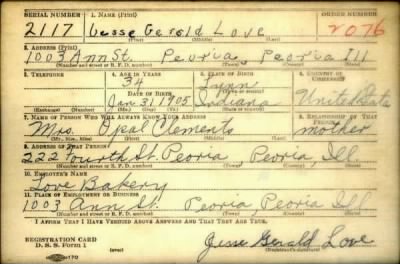 SERIAL NUMBER 1. NAME (Print) ORDER NUMBER
2117 Jesse Gerald Love 2076
(First) (Middle) (Last)
2. ADDRESS (Print)
1003 Ann St. Peoria, Peoria Ill
(Number and street or R. F. D. number) (Town) (County) (State)
3. TELEPHONE 4. AGE IN YEARS 5. PLACE OF BIRTH 6. COUNTRY OF CITIZENSHIP
34 Lynn
DATE OF BIRTH (Town or county)
Jan 31, 1905 Indiana United States
(Exchange) (Number) (Mo.) (Day) (Yr.) (State or country)
7. NAME OF PERSON WHO WILL ALWAYS KNOW YOUR ADDRESS 8. RELATIONSHIP OF THAT PERSON
Mrs. Opal Clements mother
(Mr., Mrs., Miss) (First) (Middle) (Last)
9. ADDRESS OF THAT PERSON
222 Fourth St. Peoria, Peoria, Ill.
(Number and street or R. F. D. number) (Town) (County) (State)
10. EMPLOYER'S NAME
Love Bakery
11. PLACE OF EMPLOYMENT OR BUSINESS
1003 Ann St. Peoria Peoria Ill.
(Number and street or R. F. D. number) (Town) (County) (State)
I AFFIRM THAT I HAVE VERIFIED ABOVE ANSWERS AND THAT THEY ARE TRUE.
REGISTRATION CARD
D. S. S. Form 1 Jesse Gerald Love